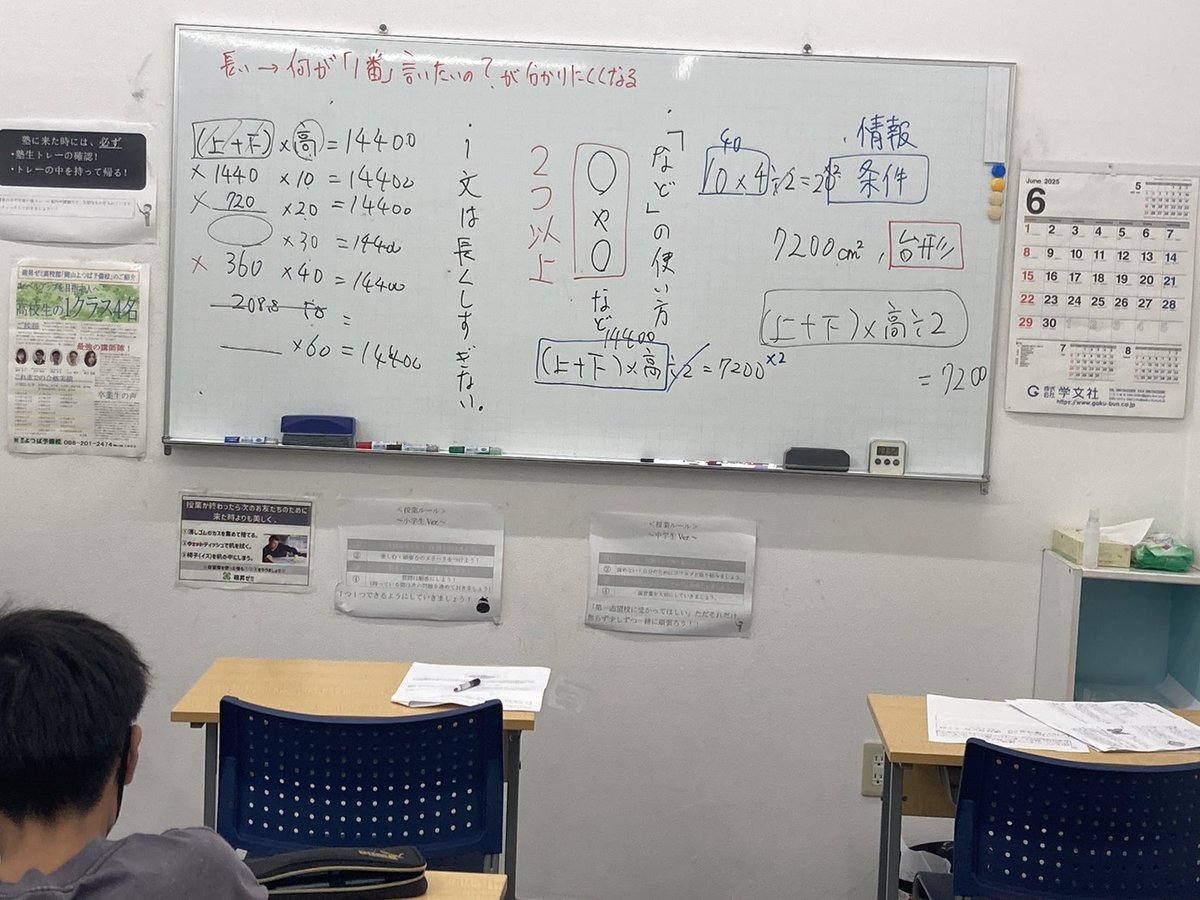 長い→何が「1番」言いたいの?が分かりにくくなる
(上+下)×高=14400
×1440 ×10=14400
×720 ×20=14400
×30=14400
×360 ×40=14400
=
×60=14400
1文は長くしすぎない。
・「など」の使い方
〇や〇など
2つ以上
・情報
条件
40
10×4÷2=20
7200cm²,台形
(上+下)×高÷2
=7200
14400
(上+下)×高÷2=7200×2
塾に来た時には、必ず
・塾生トレーの確認!
・トレーの中を持って帰る!
高校生の1クラス4名
最強の講師陣!
卒業生の声
よつば予備校 088-201-2474
授業が終わったら次のお友たちのために
来た時よりも美しく。
①消しゴムのカスを集めて捨てる。
②ウェットティッシュで机を拭く。
③椅子(イス)を机の中にしまう。
<授業ルール>
~小学生Ver.~
1つ1つできるようにしていきましょう!
<授業ルール>
~中学生Ver.~
「第一志望校に受かってほしい」ただそれだけ
焦らず少しずつ一緒に頑張ろう!!
June 2025
6
5
1 2 3 4 5 6 7
8 9 10 11 12 13 14
15 16 17 18 19 20 21
22 23 24 25 26 27 28
29 30 1 2 3 4 5
7
8
株式会社 学文社
https://www.gaku-bun.co.jp